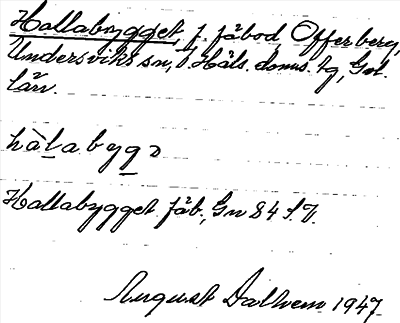 Hallabygget, f. fäbod, Offerberg,
Undersviks sn, N. Häls. doms. tg, Gvl.
län.
hàlabygə
Hallabygget fäb., Gn 84 S.V.
August Dalhem 1947.